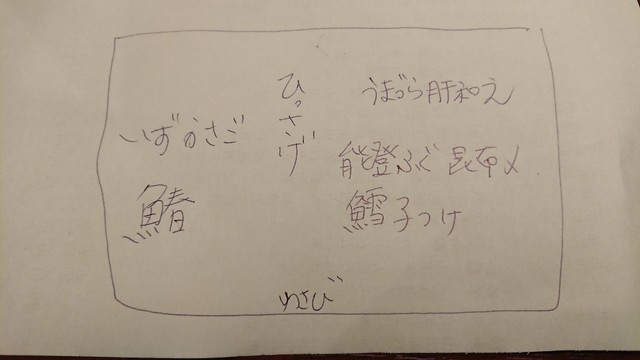 うまづら肝和え
ひっさげ
いずかさご
能登ふぐ昆布〆
鱈子つけ
鰆
わさび